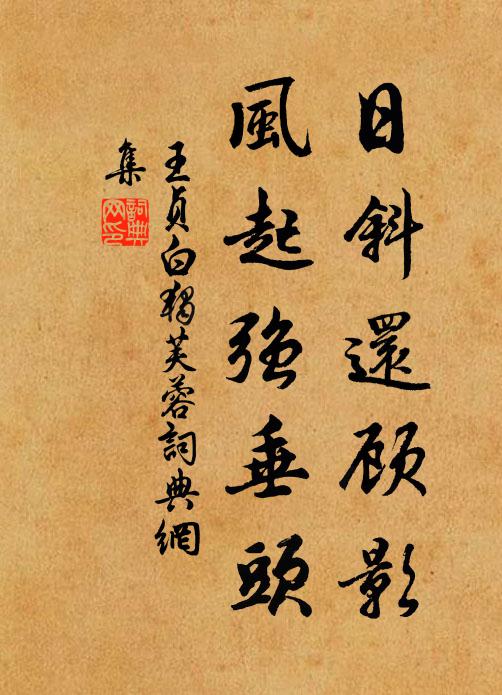 日斜還顾影
風起強垂頭
王貞白獨芙蓉詞典網
集
詞典
网印